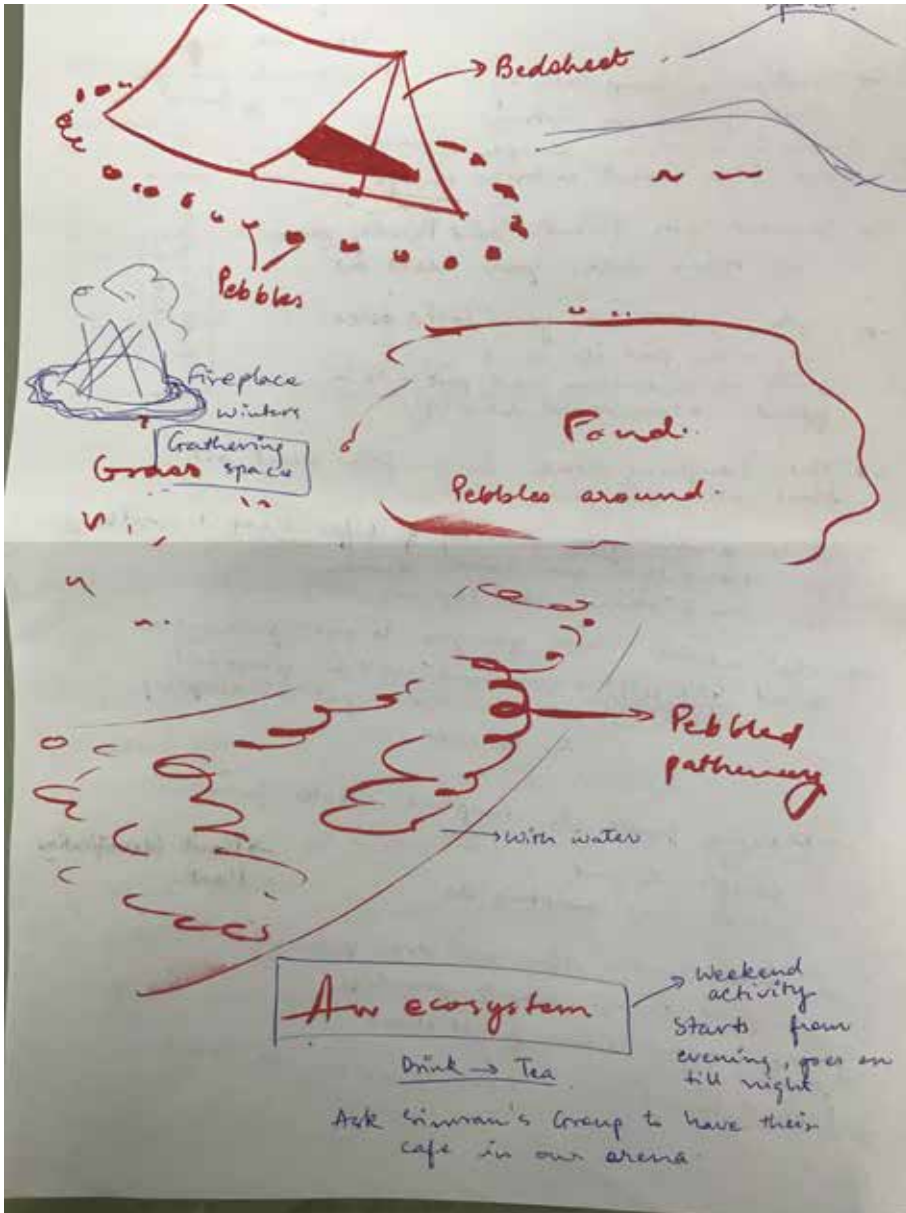 Bedsheet
Pebbles
Fireplace
winters
Gathering
Grass space
Pond.
Pebbles around.
Pebbled
pathway
with water
An ecosystem
Weekend
activity
Starts from
evening, goes on
till night
Drink → Tea
Ask Simran's Group to have their
cafe in our arena